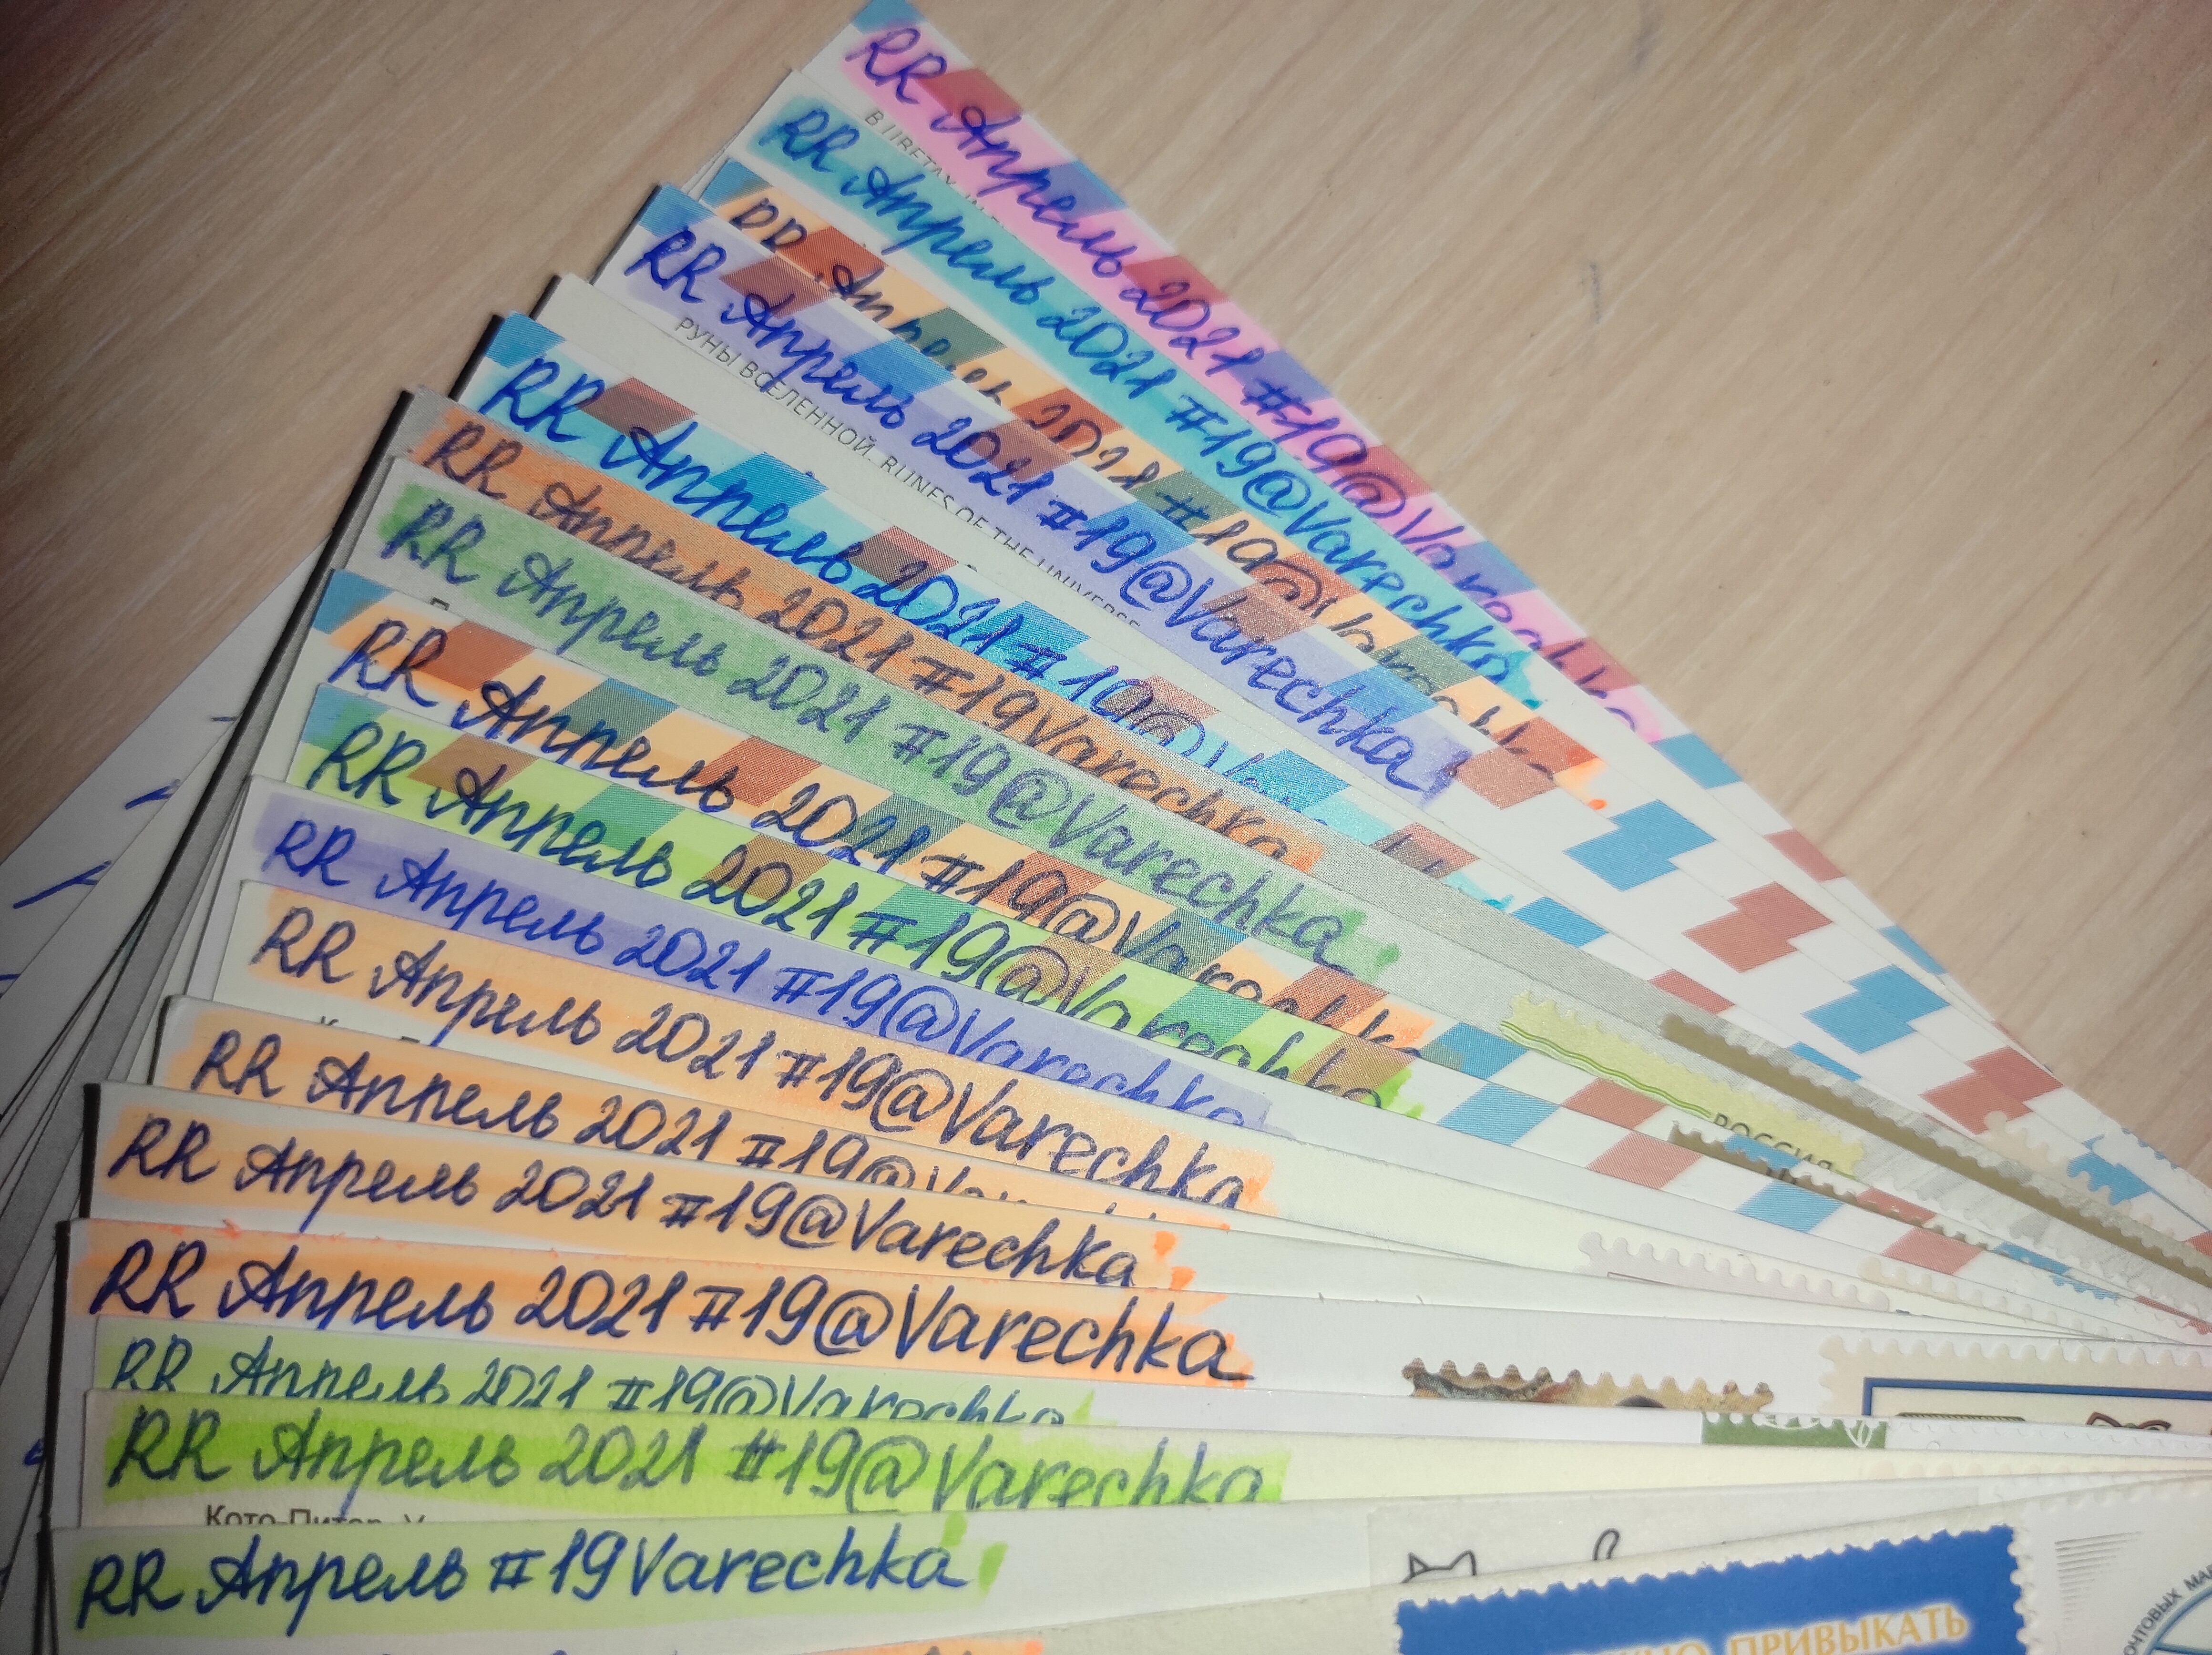 RR Апрель 2021 #19@Varechka
RR Апрель 2021 #19@Varechka
RR Апрель 2021 #19@Varechka
RR Апрель 2021 #19@Varechka
РУНЫ ВСЕЛЕННОЙ. RUNES OF THE UNIVERSE
RR Апрель 2021 #19@
RR Апрель 2021 #19Varechka
RR Апрель 2021 #19@Varechka
RR Апрель 2021 #19@Varechka
RR Апрель 2021 #19@Varechka
РОССИЯ
RR Апрель 2021 #19@Varechka
RR Апрель 2021 #19@Varechka
RR Апрель 2021 #19@
RR Апрель 2021 #19@Varechka
RR Апрель 2021 #19@Varechka
RR Апрель 2021 #19@Varechka
RR Апрель 2021 #19@Varechka
Кото-Питер.
RR Апрель #19Varechka
ПРИВЫКАТЬ